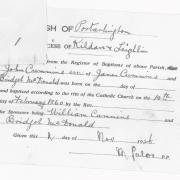 SH OF Portarlington
CESE OF Kildare & Leighlin
from the Register of Baptisms of above Parish,
John Cummins son of James Cummins
Bridget McDonald was born on
and baptised according to the rite of the Catholic Church on the 10th
day of February 1860 by the Rev.
the Sponsors being William Cummins
and Bridget McDonald
Given this day of Nov
P.P.